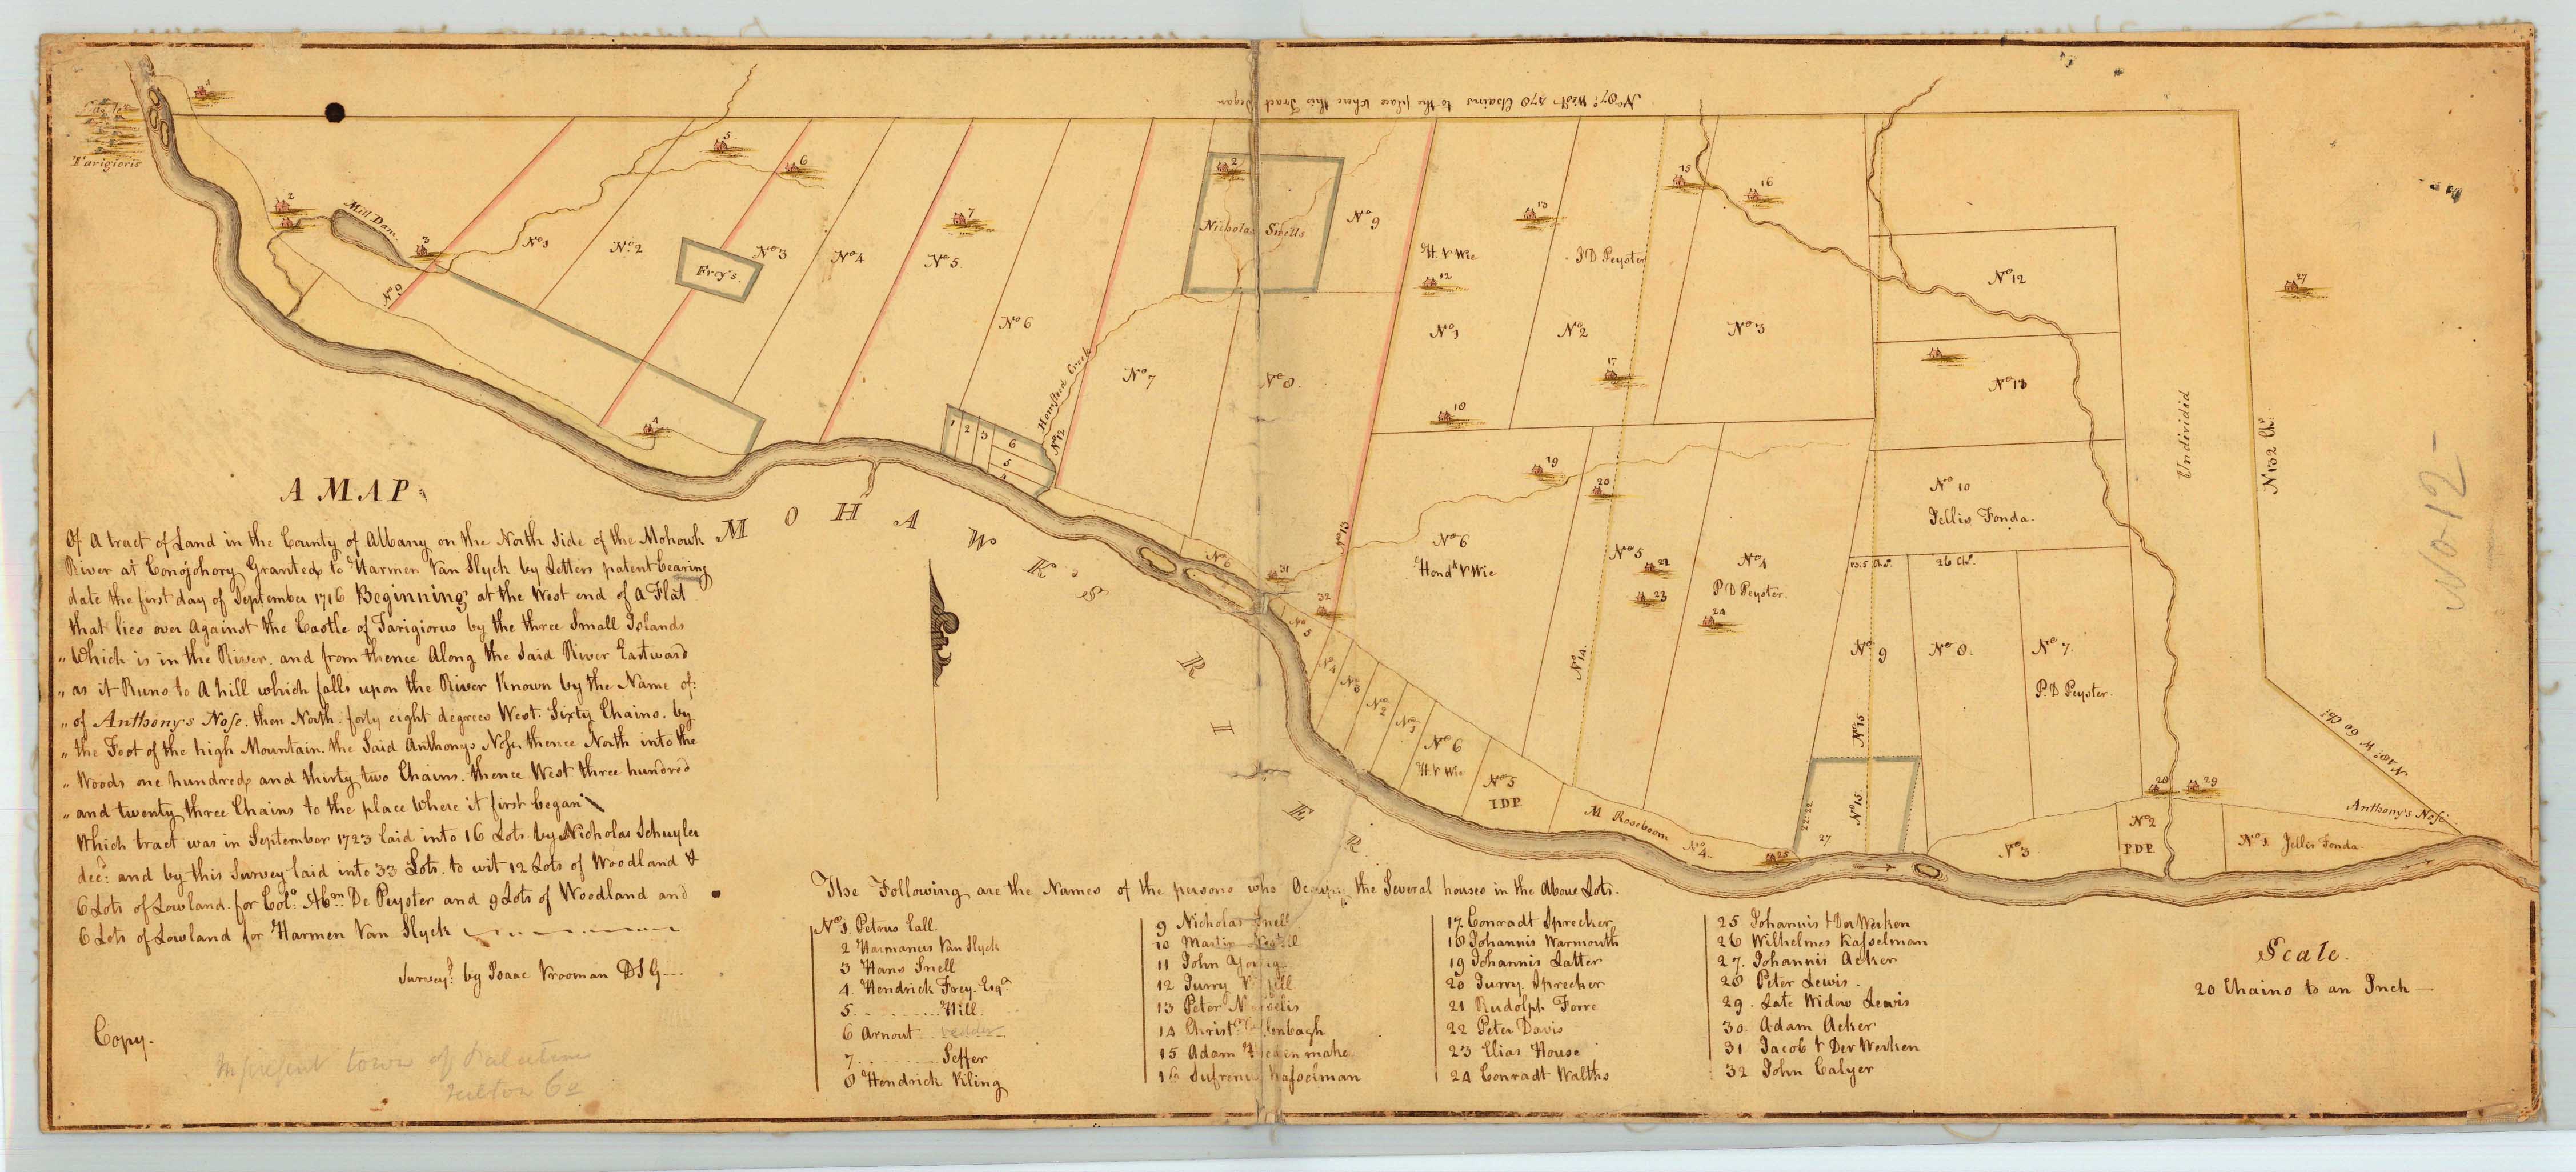 No 87° West 470 Chains to the place where this Tract began
Castle
Tarigioris
1
2
Mill Dam.
3
No 9
No 1
No 2
5
6
Frey's.
No 3
No 4
7
No 5
No 6
4
1 2 3
6
5
4
Hamsteed Creek
No 12
No 7
2
Nicholas Snells
No 8.
No 9
H. V Wie
12
No 1
10
13
J D Peyster
No 2
17
15
16
No 3
No 12
No 13
No 10
Jellis Fonda.
Undivided
N 132 Chs.
27
No 12
No 13
No 6
Hendk V Wie
19
20
No 5
22
23
No 14
No 4
P D Peyster.
24
26 Chs.
No 9
No 8.
No 7.
P. D Peyster.
No 15
N 48° W 60 Chs
Anthony's Nose
No 6
31
32
No 5
No 4
No 3
No 2
No 1
No 6
H. V Wie
No 5
I D P
M Roseboom
No 4
25
22:22
27
No 15
No 3
No 2
P D P
28
29
No 1 Jellis Fonda.
MOHAWKS RIVER
A MAP
Of A tract of Land in the County of Albany on the North Side of the Mohowk
River at Conojohory Granted to Harmen Van Slyck by Letters patent bearing
date the first day of September 1716 Beginning at the West end of a Flat
that lies over Against the Castle of Tarigiorus by the three Small Islands
„ Which is in the River. and from thence Along the Said River Eastward
„ as it Runs to A hill which falls upon the River Known by the Name of:
„ of Anthonys Nose. then North. forty eight degrees West. Sixty Chains. by
„ the Foot of the high Mountain. the Said Anthonys Nose, thence North into the
„ Woods one hundred and thirty two Chains. thence West three hundred
„ and twenty three Chains to the place Where it first began
Which tract was in September 1723 laid into 16 Lots. by Nicholas Schuyler
decd: and by this Survey laid into 33 Lots. to wit 12 Lots of Woodland &
6 Lots of Lowland. for Colo. Abm. De Peyster and 9 Lots of Woodland and
6 Lots of Lowland for Harmen Van Slyck
Surveyd. by Isaac Vrooman D S G
Copy.
In present town of Palatine
Fulton Co
The Following are the Names of the persons who Occupy the Several houses in the Above Lots.
No 1. Petrus Lall
2 Harmanus Van Slyck
3 Hans Snell
4. Hendrick Frey. Esqr.
5. - - - - - - - - Hill.
6 Arnout Vedder
7. - - - - - - - Seffer
8 Hendrick Kling
9 Nicholas Snell
10 Martin
11 John Young
12 Jurry
13 Peter
14 Christ.
15 Adam
16 Sufrenus Kasselman
17. Conradt Sprecker
18 Johannis Warmouth
19 Johannis Latter
20 Jurry. Sprecher
21 Rudolph Forre
22 Peter Davis
23 Elias House
24 Conradt Walths
25 Johannis V Der Werken
26 Wilhelmes Kasselman
27. Johannis Acker
28 Peter Lewis.
29. Late Widow Lewis
30. Adam Acker
31 Jacob V Der Werken
32 John Calyer
Scale.
20 Chains to an Inch